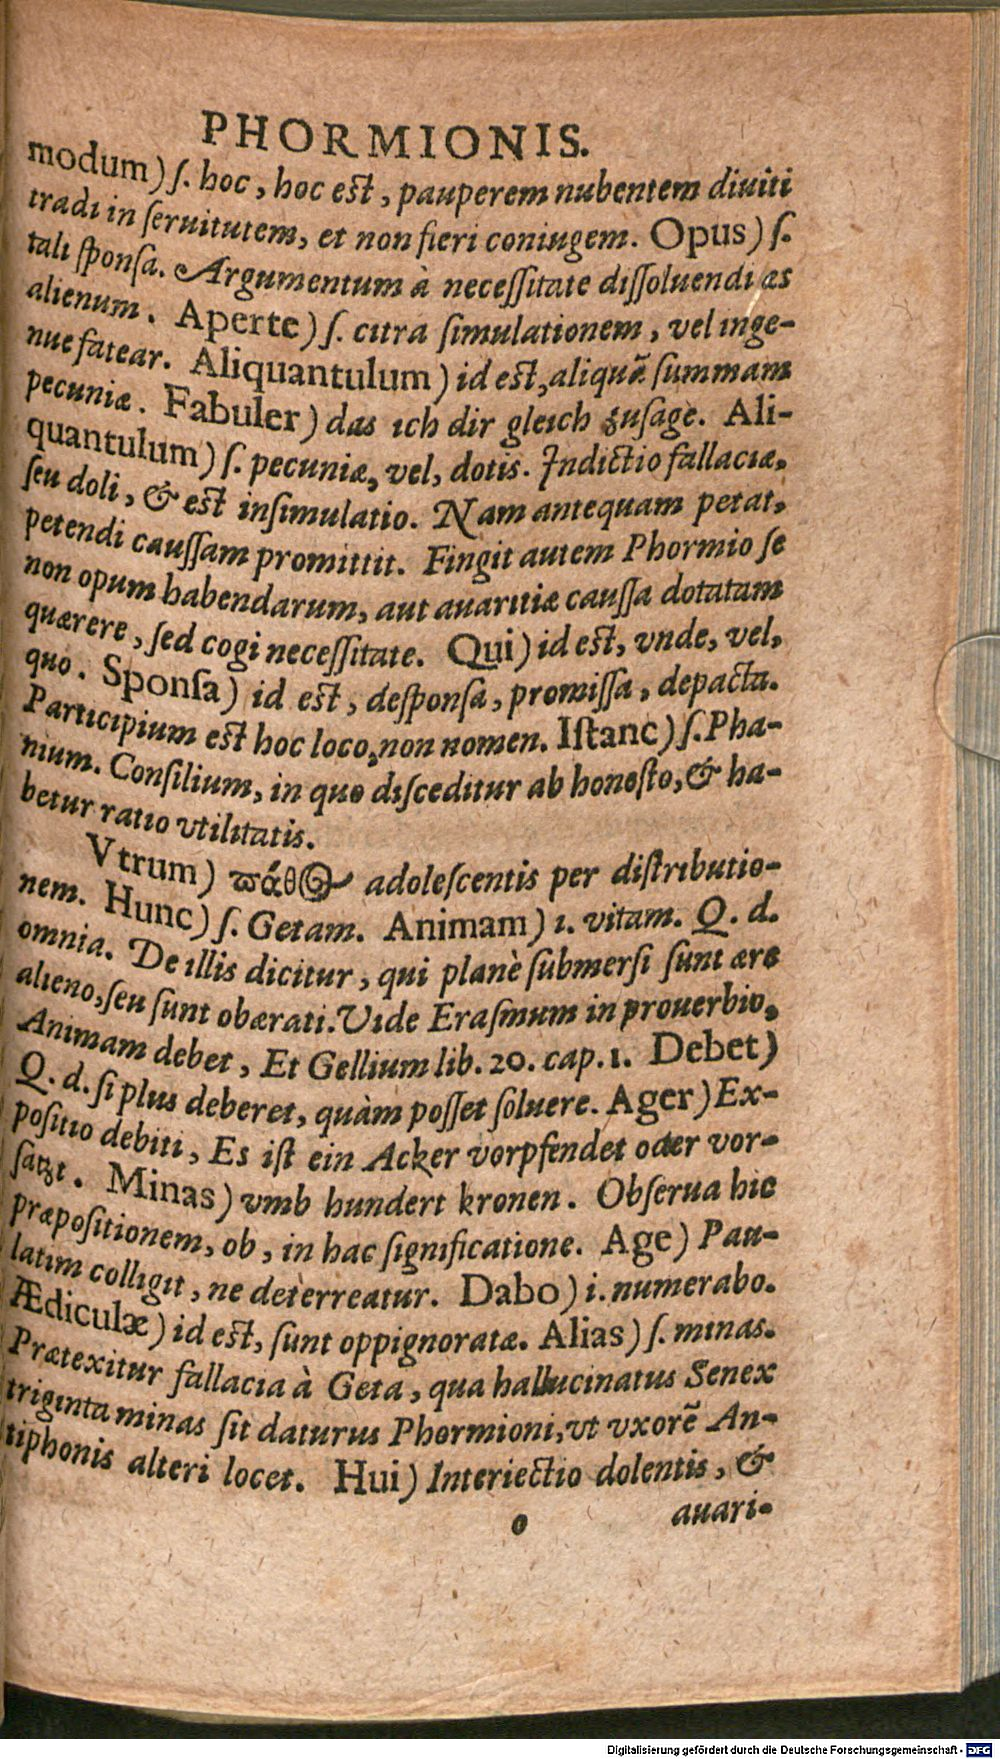 PHORMIONIS.
modum) ſ. hoc, hoc eſt, pauperem nubentem diuiti
tradi in ſeruitutem, et non fieri coniugem. Opus) ſ.
tali ſponſa. Argumentum à neceſſitate diſſoluendi æs
alienum. Aperte) ſ. citra ſimulationem, vel inge-
nue fatear. Aliquantulum) id eſt, aliquã ſummam
pecuniæ. Fabuler) das ich dir gleich zuſage. Ali-
quantulum) ſ. pecuniæ, vel, dotis. Indictio fallaciæ,
ſeu doli, & eſt inſimulatio. Nam antequam petat,
petendi cauſſam promittit. Fingit autem Phormio ſe
non opum habendarum, aut auaritiæ cauſſa dotatam
quærere, ſed cogi neceſſitate. Qui) id eſt, vnde, vel,
quo. Sponſa) id eſt, deſponſa, promiſſa, depacta.
Participium eſt hoc loco, non nomen. Iſtanc) ſ. Pha-
nium. Conſilium, in quo diſceditur ab honeſto, & ha-
betur ratio vtilitatis.
Vtrum) ϖάθος adoleſcentis per diſtributio-
nem. Hunc) ſ. Getam. Animam) i. vitam. Q. d.
omnia. De illis dicitur, qui planè ſubmerſi ſunt ære
alieno, ſeu ſunt obærati. Vide Eraſmum in prouerbio,
Animam debet, Et Gellium lib. 20. cap. 1. Debet)
Q. d. ſi plus deberet, quàm poſſet ſoluere. Ager) Ex-
poſitio debiti, Es iſt ein Acker vorpfendet oder vor-
ſatzt. Minas) vmb hundert kronen. Obſerua hic
præpoſitionem, ob, in hac ſignificatione. Age) Pau-
latim colligit, ne deterreatur. Dabo) i. numerabo.
Ædiculæ) id eſt, ſunt oppignoratæ. Alias) ſ. minas.
Prætexitur fallacia à Geta, qua hallucinatus Senex
triginta minas ſit daturus Phormioni, vt vxorẽ An-
tiphonis alteri locet. Hui) Interiectio dolentis, &
o auari-
Digitalisierung gefördert durch die Deutsche Forschungsgemeinschaft - DFG